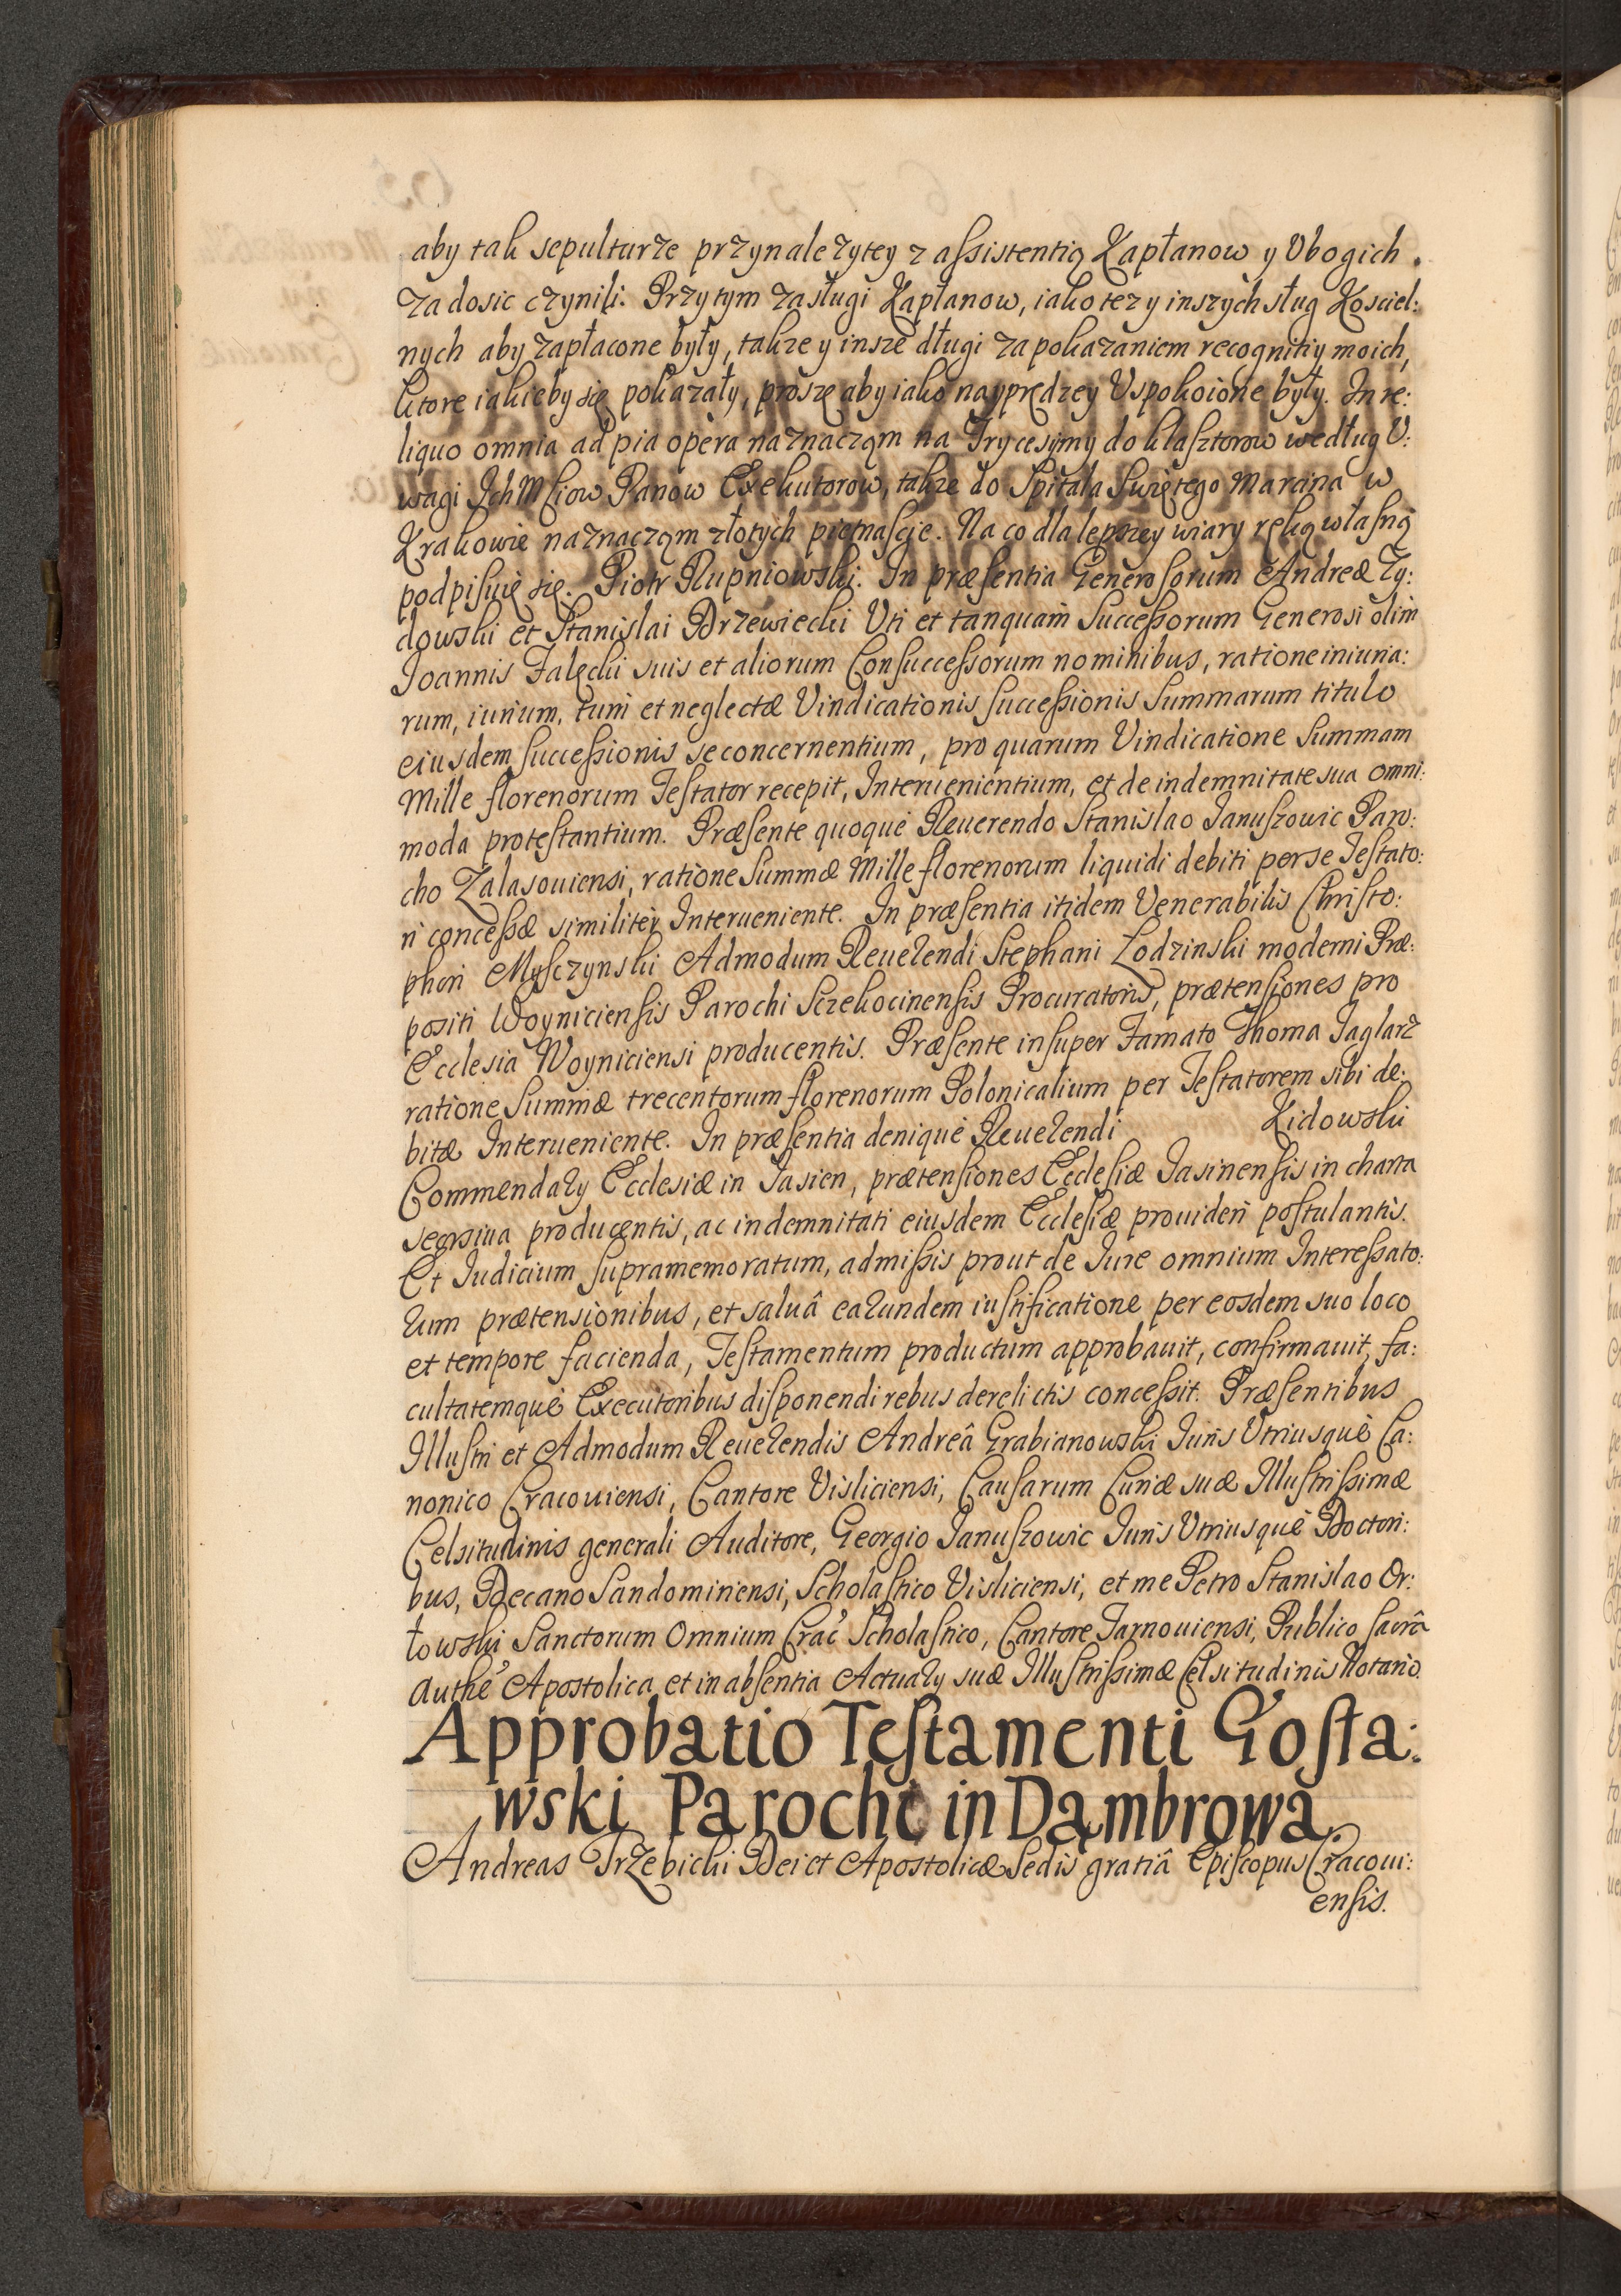 aby tak sepulturze przynalezytey z assistentią Kapłanow y Vbogich.
zadosic czynili. Przytym zasługi Kapłanow, iako tez y inszych sług Kosciel:
nych aby zapłacone były, takze y insze długi za pokazaniem recognitiy moich,
ktore iakieby się pokazały, proszę aby iako nayprędzey Vspokoione były. In re:
liquo omnia ad pia opera naznacząm na Trycesymy do klasztorow według V:
wagi Ich Mściow Panow Exekutorow, takze do Spitala Swiętego Marcina w
Krakowie naznacząm złotych piętnascie. Na co dla lepszey wiary ręką własną
podpisuię się. Piotr Rupniowski. In præsentia Generosorum Andreæ Zy:
dowski et Stanislai Drzewiecki Vti et tanquam Successorum Generosi olim
Joannis Falęcki suis et aliorum Consuccessorum nominibus, ratione iniuria:
rum, iurium, tum et neglectæ Vindicationis successionis Summarum titulo
eiusdem successionis se concernentium, pro quarum Vindicatione Summam
Mille florenorum Testator recepit, Interuenientium, et de indemnitate sua omni:
moda protestantium. Præsente quoque Reuerendo Stanislao Januszowic Paro:
cho Zalasouiensi, ratione Summæ Mille florenorum liquidi debiti per se Testato:
ri concessæ similiter Interueniente. In præsentia itidem Venerabilis Christo:
phori Myszczynski Admodum Reuerendi Stephani Lodzinski moderni Præ:
positi Woyniciensis Parochi Sczekocinensis Procuratoris, prætensiones pro
Ecclesia Woyniciensi producentis. Præsente insuper Famato Thoma Jaglarz
ratione Summæ trecentorum florenorum Polonicalium per Testatorem sibi de:
bitæ Interueniente. In præsentia denique Reuerendi Kidowski
Commendary Ecclesiæ in Jasien, prætensiones Ecclesiæ Jasinensis in charta
seorsiua producentis, ac indemnitati eiusdem Ecclesiæ prouideri postulantis.
Et Iudicium supramemoratum, admissis prout de Iure omnium Interessato:
rum prætensionibus, et saluâ earundem iustificatione per eosdem suo loco
et tempore facienda, Testamentum productum approbauit, confirmauit, fa:
cultatemque Executoribus disponendi rebus derelictis concessit. Præsentibus
Illustri et Admodum Reuerendis Andreâ Grabianowski Iuris Vtriusque Ca:
nonico Cracouiensi, Cantore Visliciensi, Causarum Curiæ suæ Illustrissimæ
Celsitudinis generali Auditore, Georgio Januszowic Iuris Vtriusque Doctori:
bus, Decano Sandomiriensi, Scholastico Visliciensi, et me Petro Stanislao Or:
łowski Sanctorum Omnium Crac Scholastico, Cantore Tarnouiensi, Publico sacrâ
Authe Apostolica et in absentia Actuary suæ Illustrissimæ Celsitudinis Notario.
Approbatio Testamenti Gosła:
wski Parochi in Dąmbrowa.
Andreas Trzebicki Dei et Apostolicæ Sedis gratiâ Episcopus Cracoui:
ensis.